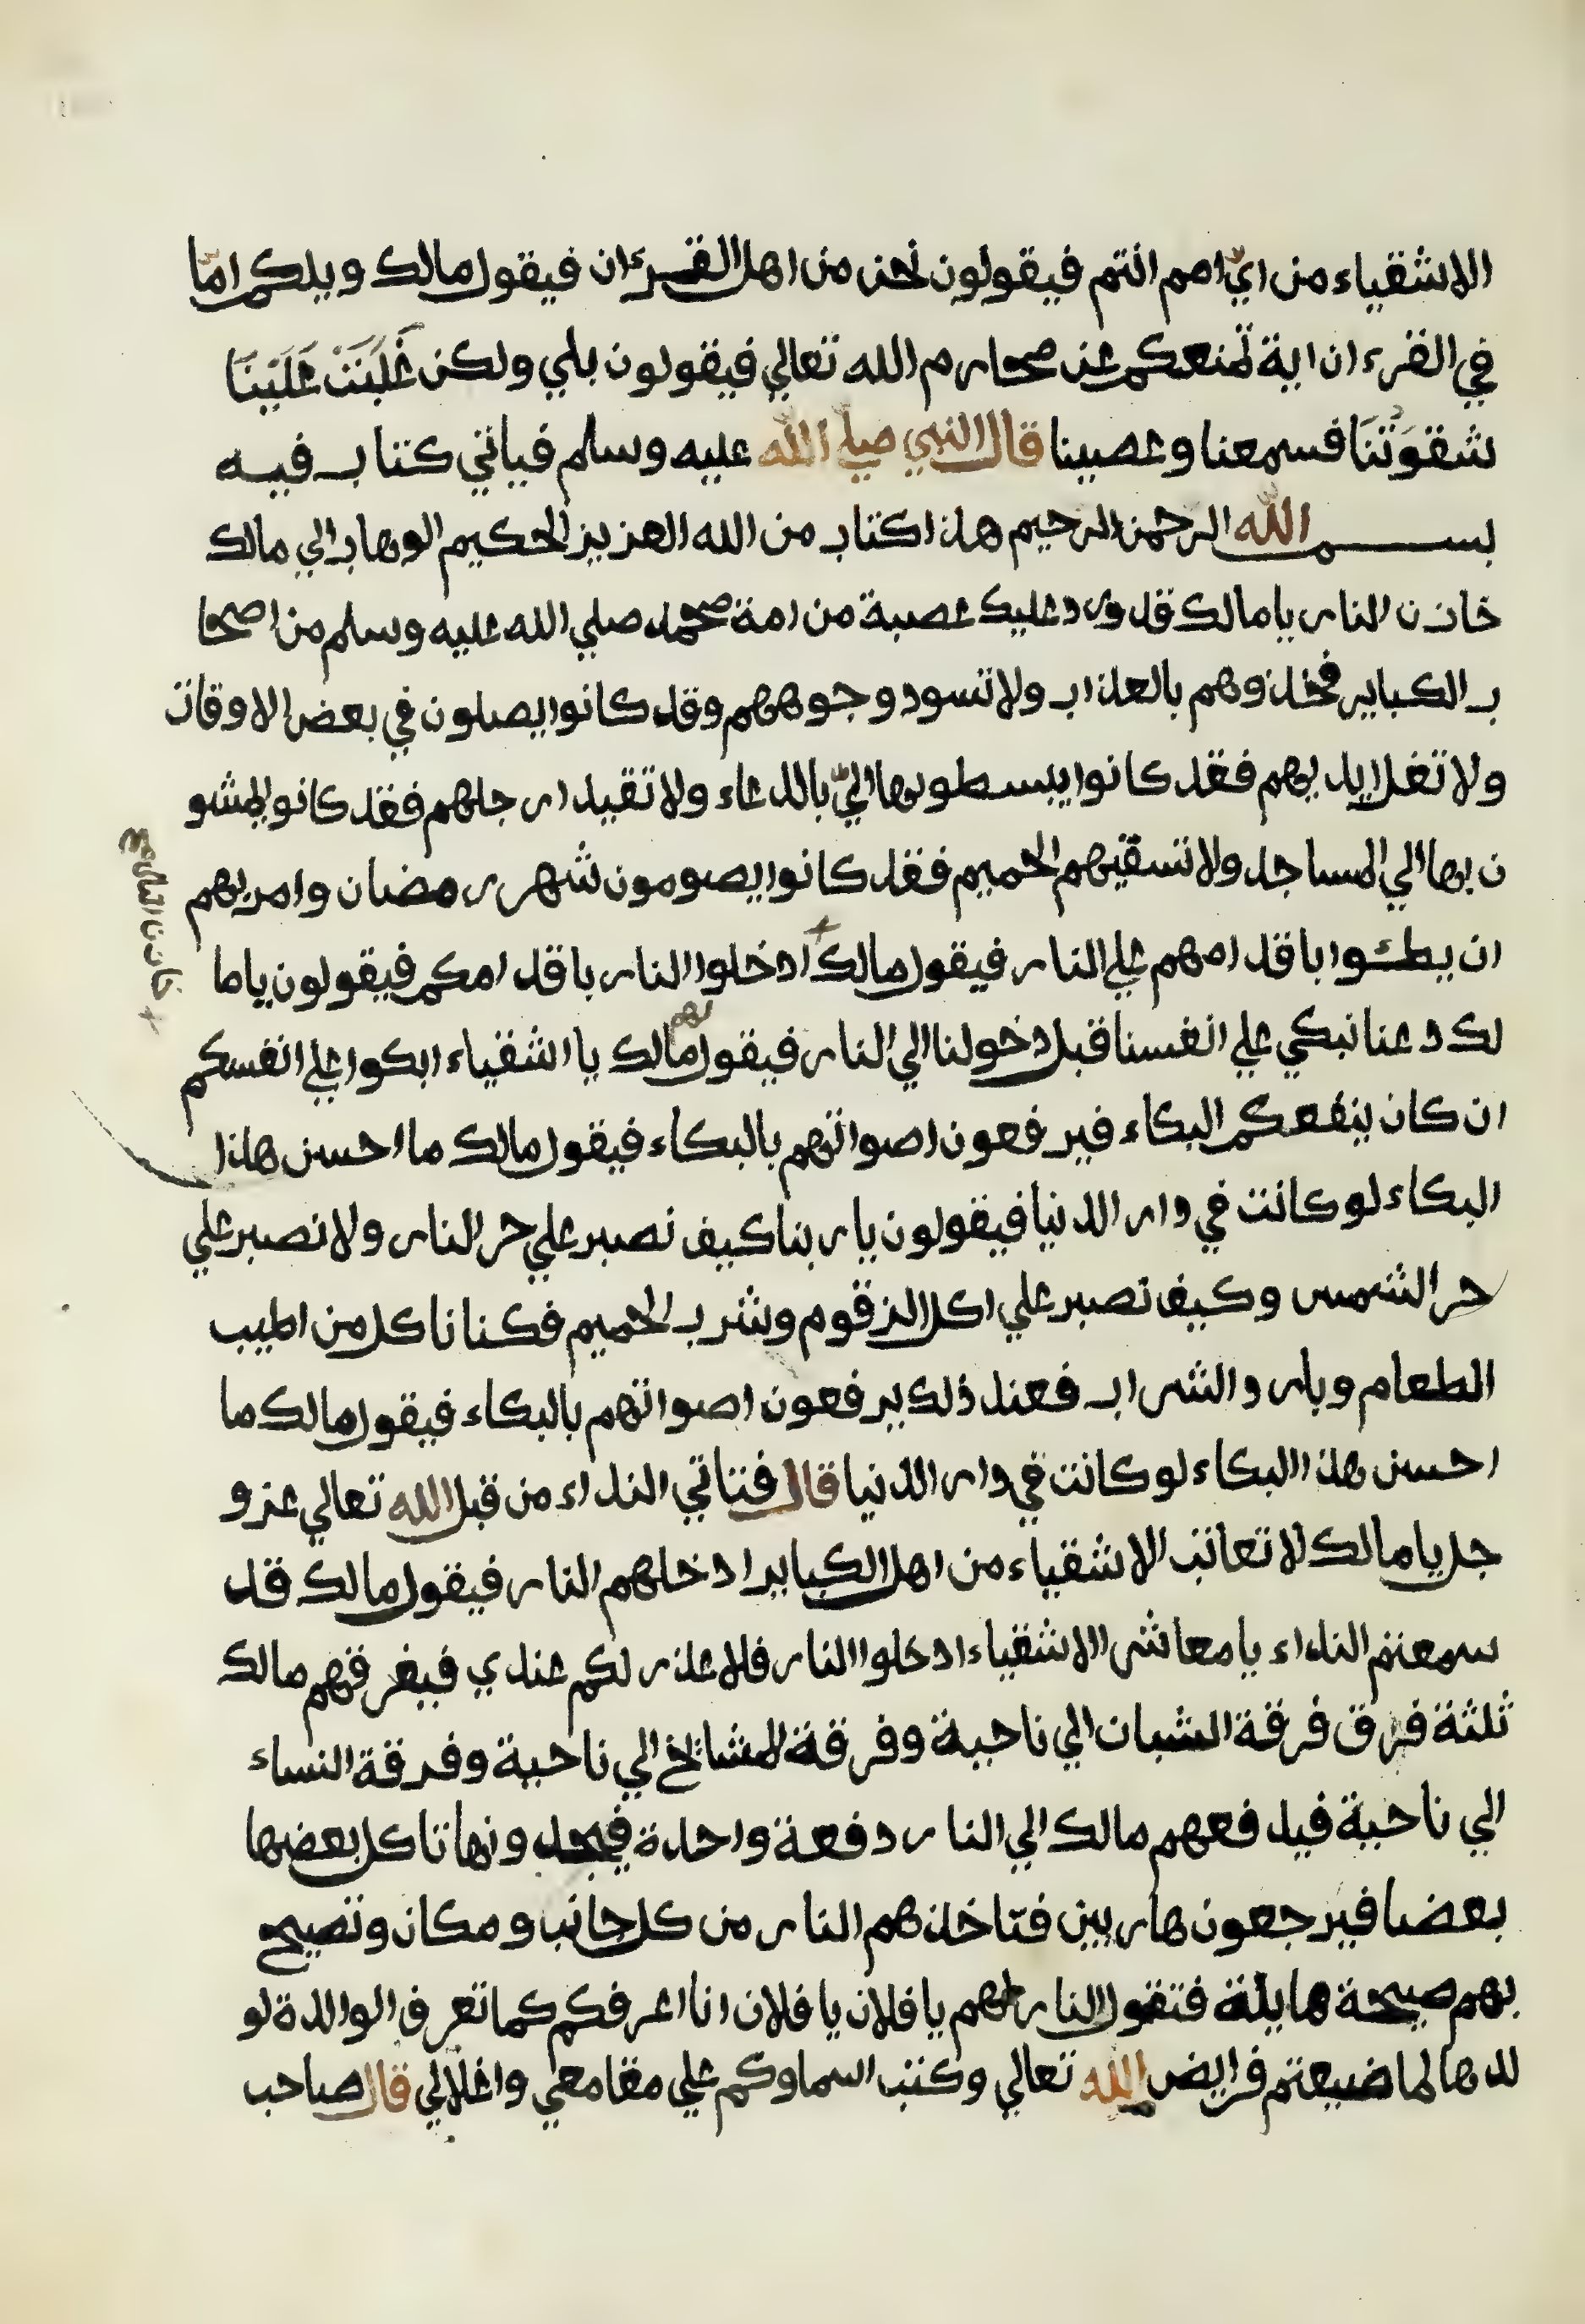 الاشقياء من ايّ امم انتم فيقولون نحن من اهل القرءان فيقول مالك ويلكم امّا
في القرءان اية تمنعكم عن محارم الله تعالي فيقولون بلي ولكن غَلَبَتْ عَلَيْنَا
شقوَتُنَا فسمعنا وعصينا قال النبي صلي الله عليه وسلم فياتي كتاب فيه
بسم الله الرحمن الرحيم هاذا كتاب من الله العزيز الحكيم الوهاب الي مالك
خازن النار يا مالك قد ورد عليك عصبة من امة محمد صلي الله عليه وسلم من اصحا
ب الكباير فخذوهم بالعذاب ولا تسود وجوههم وقد كانوا يصلون في بعض الاوقات
ولا تغل ايديهم فقد كانوا يبسطوبها اليّ بالدعاء ولا تقيد ارجلهم فقد كانوا يمشو
ن بها الي المساجد ولا تسقيهم الحميم فقد كانوا يصومون شهر رمضان وامر بهم
ان يطئوا باقدامهم علي النار فيقول مالك ادخلوا النار باقدامكم فيقولون يا ما
لك دعنا نبكي علي انفسنا قبل دخولنا الي النار فيقول لهم مالك يا اشقياء ابكوا علي انفسكم
ان كان ينفعكم البكاء فيرفعون اصواتهم بالبكاء فيقول مالك ما احسن هاذا
البكاء لو كانت في دار الدنيا فيقولون يا ربنا كيف نصبر علي حر النار ولا نصبر علي
حر الشمس وكيف نصبر علي اكل الزقوم وشرب الحميم فكنا ناكل من اطيب
الطعام وبارد الشراب فعند ذلك يرفعون اصواتهم بالبكاء فيقول مالك ما
احسن هذا البكاء لو كانت في دار الدنيا قال فتاتي النداء من قبل الله تعالي عز و
جل يا مالك لا تعاتب الاشقياء من اهل الكباير ادخلهم النار فيقول مالك قد
سمعتم النداء يا معاشر الاشقياء ادخلوا النار فلا عذر لكم عندي فيفرقهم مالك
ثلثة فرق فرقة الشبان الي ناحية وفرقة المشائخ الي ناحية وفرقة النساء
الي ناحية فيدفعهم مالك الي النار دفعة واحدة فيجدونها تاكل بعضها
بعضا فيرجعون هاربين فتاخذهم النار من كل جانب ومكان وتصيح
بهم صيحة هايلة فتقول النار لهم يا فلان يا فلان انا اعرفكم كما تعرف الوالدة لو
لدها لما ضيعتم فرايض الله تعالي وكتب اسماوكم علي مقامعي واغلالي قال صاحب
خازن النار